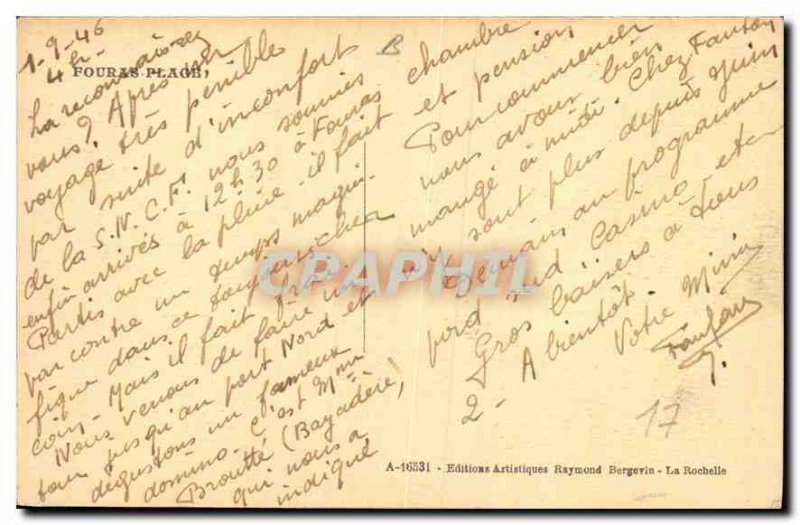 1-9-46
4h-
FOURAS-PLAGE,
La reconnaissez
vous? Après un
voyage très pénible
par suite d'inconfort
de la S.N.C.F. nous sommes
enfin arrivés à 12h30 à Fouras
Partis avec la pluie il fait
par contre un temps magni-
fique dans ce
coin - Mais il fait frais
Nous venons de faire un
tour jusqu'au port Nord et
dégustons un fameux
domino. C'est Mme
Broutté (Bayadère)
qui nous a
indiqué
B
chambre
et pension
Pour commencer
nous avons bien
mangé à midi. Chez Fanton
n'y sont plus depuis juin
Demain au programme
pord Sud Casino etc
Gros baisers à tous
2- A bientôt.
Votre Mimi
Fanfan
J.
17
CPAPHIL
A-16531 - Editions Artistiques Raymond Bergevin - La Rochelle